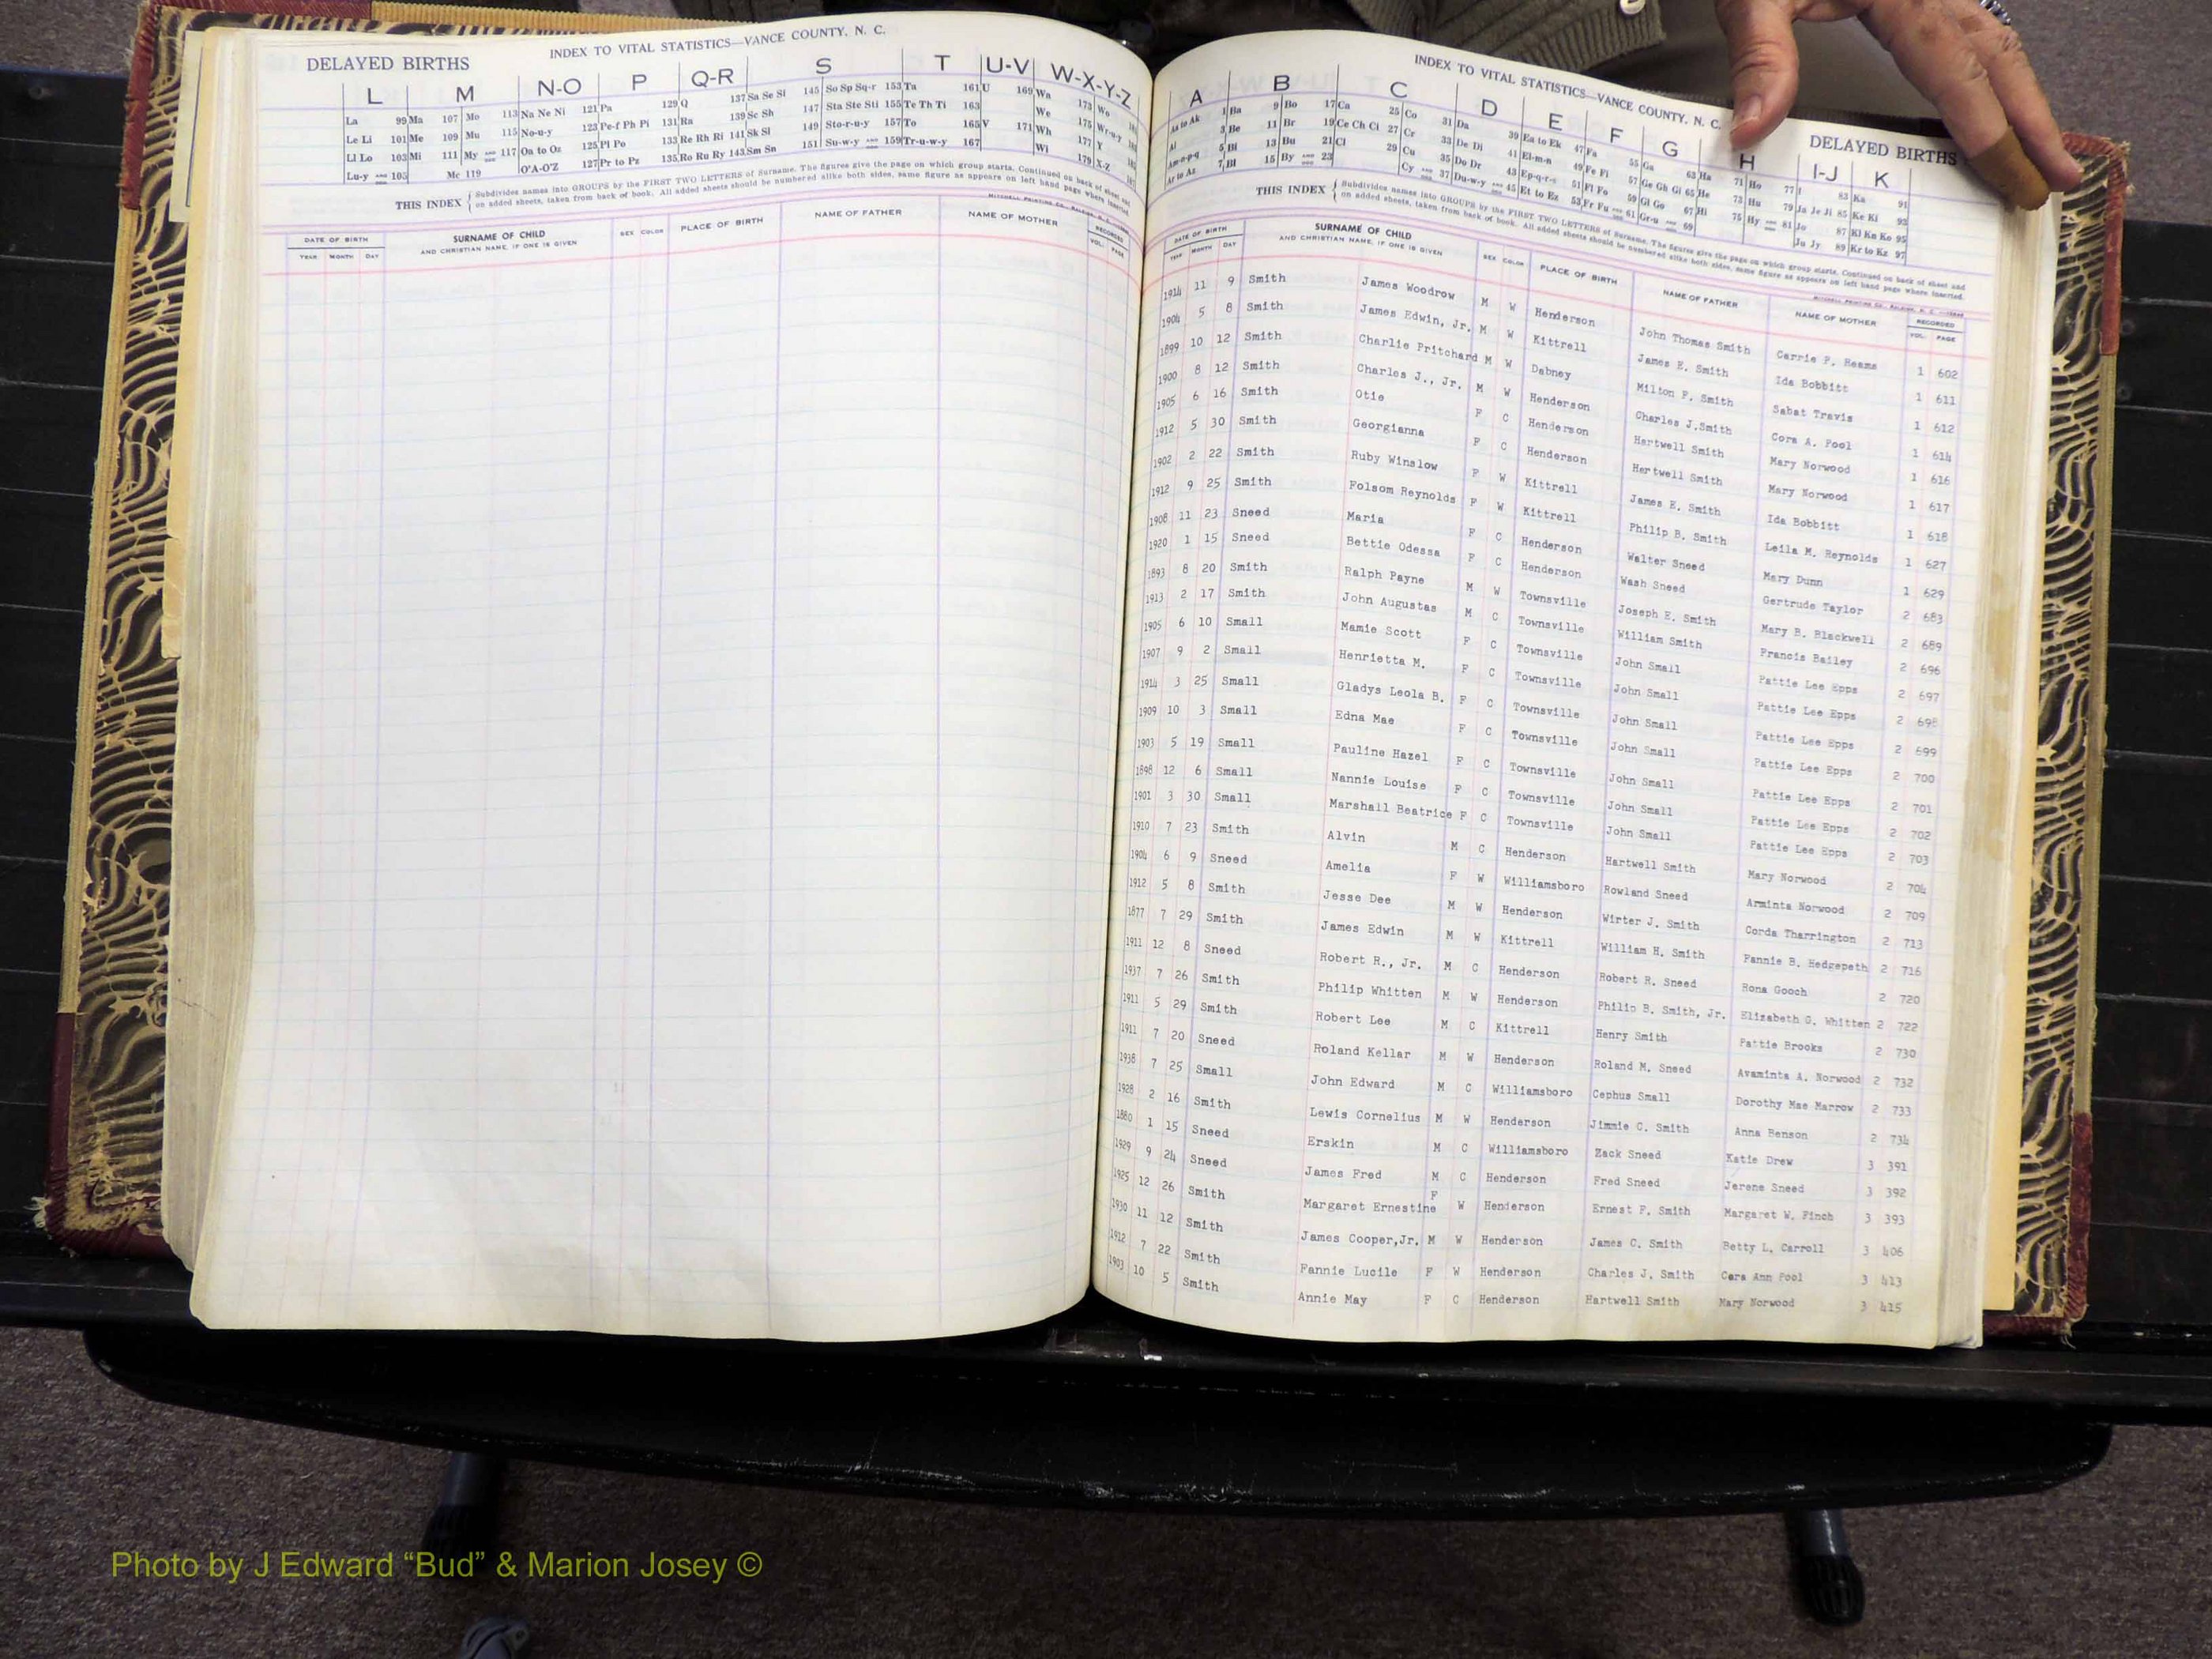 INDEX TO VITAL STATISTICS—VANCE COUNTY, N. C.
DELAYED BIRTHS
L M N-O P Q-R S T U-V W-X-Y-Z
La 99 Ma 107 Mo 113 Na Ne Ni 121 Pa 129 Q 137 Sa Se Si 145 So Sp Sq-r 153 Ta 161 U 169 Wa 173 Wo
Le Li 101 Me 109 Mu 115 No-u-y 123 Pe-f Ph Pi 131 Ra 139 Sc Sh 147 Sta Ste Sti 155 Te Th Ti 163 We 175 Wr-u-y
Ll Lo 103 Mi 111 My AND 117 Oa to Oz 125 Pl Po 133 Re Rh Ri 141 Sk Sl 149 Sto-r-u-y 157 To 165 V 171 Wh 177 Y
Lu-y AND 105 Mc 119 O'A-O'Z 127 Pr to Pz 135 Ro Ru Ry 143 Sm Sn 151 Su-w-y AND 159 Tr-u-w-y 167 Wi 179 X-Z
THIS INDEX { Subdivides names into GROUPS by the FIRST TWO LETTERS of Surname. The figures give the page on which group starts. Continued on back of sheet and
on added sheets, taken from back of book. All added sheets should be numbered alike both sides, same figure as appears on left hand page where inserted.
DATE OF BIRTH SURNAME OF CHILD SEX COLOR PLACE OF BIRTH NAME OF FATHER NAME OF MOTHER RECORDED
YEAR MONTH DAY AND CHRISTIAN NAME, IF ONE IS GIVEN VOL. PAGE
INDEX TO VITAL STATISTICS—VANCE COUNTY, N. C.
DELAYED BIRTHS
A B C D E F G H I-J K
Aa to Ak 1 Ba 9 Bo 17 Ca 25 Co 31 Da 39 Ea to Ek 47 Fa 55 Ga 63 Ha 71 Ho 77 I 83 Ka 91
Al 3 Be 11 Br 19 Ce Ch Ci 27 Cr 33 De Di 41 El-m-n 49 Fe Fi 57 Ge Gh Gi 65 He 73 Hu 79 Ja Je Ji 85 Ke Ki 93
Am-n-p-q 5 Bi 13 Bu 21 Cl 29 Cu 35 Do Dr 43 Ep-q-r-s 51 Fl Fo 59 Gl Go 67 Hi 75 Hy AND 81 Jo 87 Kl Kn Ko 95
Ar to Az 7 Bl 15 By AND 23 Cy AND 37 Du-w-y AND 45 Et to Ez 53 Fr Fu AND 61 Gr-u AND 69 Ju Jy 89 Kr to Kz 97
THIS INDEX { Subdivides names into GROUPS by the FIRST TWO LETTERS of Surname. The figures give the page on which group starts. Continued on back of sheet and
on added sheets, taken from back of book. All added sheets should be numbered alike both sides, same figure as appears on left hand page where inserted.
DATE OF BIRTH SURNAME OF CHILD SEX COLOR PLACE OF BIRTH NAME OF FATHER NAME OF MOTHER RECORDED
YEAR MONTH DAY AND CHRISTIAN NAME, IF ONE IS GIVEN VOL. PAGE
1914 11 9 Smith James Woodrow M W Henderson John Thomas Smith Carrie P. Heams 1 602
1904 5 8 Smith James Edwin, Jr. M W Kittrell James E. Smith Ida Bobbitt 1 611
1899 10 12 Smith Charlie Pritchard M W Dabney Milton F. Smith Sabat Travis 1 612
1900 8 12 Smith Charles J., Jr. M W Henderson Charles J.Smith Cora A. Pool 1 614
1905 6 16 Smith Otie F C Henderson Hartwell Smith Mary Norwood 1 616
1912 5 30 Smith Georgianna F C Henderson Hertwell Smith Mary Norwood 1 617
1902 2 22 Smith Ruby Winslow F W Kittrell James E. Smith Ida Bobbitt 1 618
1912 9 25 Smith Folsom Reynolds F W Kittrell Philip B. Smith Leila M. Reynolds 1 627
1908 11 23 Sneed Maria F C Henderson Walter Sneed Mary Dunn 1 629
1920 1 15 Sneed Bettie Odessa F C Henderson Wash Sneed Gertrude Taylor 2 683
1893 8 20 Smith Ralph Payne M W Townsville Joseph E. Smith Mary B. Blackwell 2 689
1913 2 17 Smith John Augustas M C Townsville William Smith Francis Bailey 2 696
1905 6 10 Small Mamie Scott F C Townsville John Small Pattie Lee Epps 2 697
1907 9 2 Small Henrietta M. F C Townsville John Small Pattie Lee Epps 2 698
1914 3 25 Small Gladys Leola B. F C Townsville John Small Pattie Lee Epps 2 699
1909 10 3 Small Edna Mae F C Townsville John Small Pattie Lee Epps 2 700
1903 5 19 Small Pauline Hazel F C Townsville John Small Pattie Lee Epps 2 701
1898 12 6 Small Nannie Louise F C Townsville John Small Pattie Lee Epps 2 702
1901 3 30 Small Marshall Beatrice F C Townsville John Small Pattie Lee Epps 2 703
1910 7 23 Smith Alvin M C Henderson Hartwell Smith Mary Norwood 2 704
1904 6 9 Sneed Amelia F W Williamsboro Rowland Sneed Arminta Norwood 2 709
1912 5 8 Smith Jesse Dee M W Henderson Wirter J. Smith Corda Tharrington 2 713
1877 7 29 Smith James Edwin M W Kittrell William H. Smith Fannie B. Hedgepeth 2 716
1911 12 8 Sneed Robert R., Jr. M C Henderson Robert R. Sneed Rona Gooch 2 720
1937 7 26 Smith Philip Whitten M W Henderson Philip B. Smith, Jr. Elizabeth G. Whitten 2 722
1911 5 29 Smith Robert Lee M C Kittrell Henry Smith Pattie Brooks 2 730
1911 7 20 Sneed Roland Kellar M W Henderson Roland M. Sneed Avaminta A. Norwood 2 732
1938 7 25 Small John Edward M C Williamsboro Cephus Small Dorothy Mae Marrow 2 733
1928 2 16 Smith Lewis Cornelius M W Henderson Jimmie C. Smith Anna Benson 2 734
1880 1 15 Sneed Erskin M C Williamsboro Zack Sneed Katie Drew 3 391
1929 9 24 Sneed James Fred M C Henderson Fred Sneed Jerene Sneed 3 392
1925 12 26 Smith Margaret Ernestine F W Henderson Ernest F. Smith Margaret W. Finch 3 393
1930 11 12 Smith James Cooper,Jr. M W Henderson James C. Smith Betty L. Carroll 3 406
1912 7 22 Smith Fannie Lucile F W Henderson Charles J. Smith Cora Ann Pool 3 413
1903 10 5 Smith Annie May F C Henderson Hartwell Smith Mary Norwood 3 415
Photo by J Edward “Bud” & Marion Josey ©